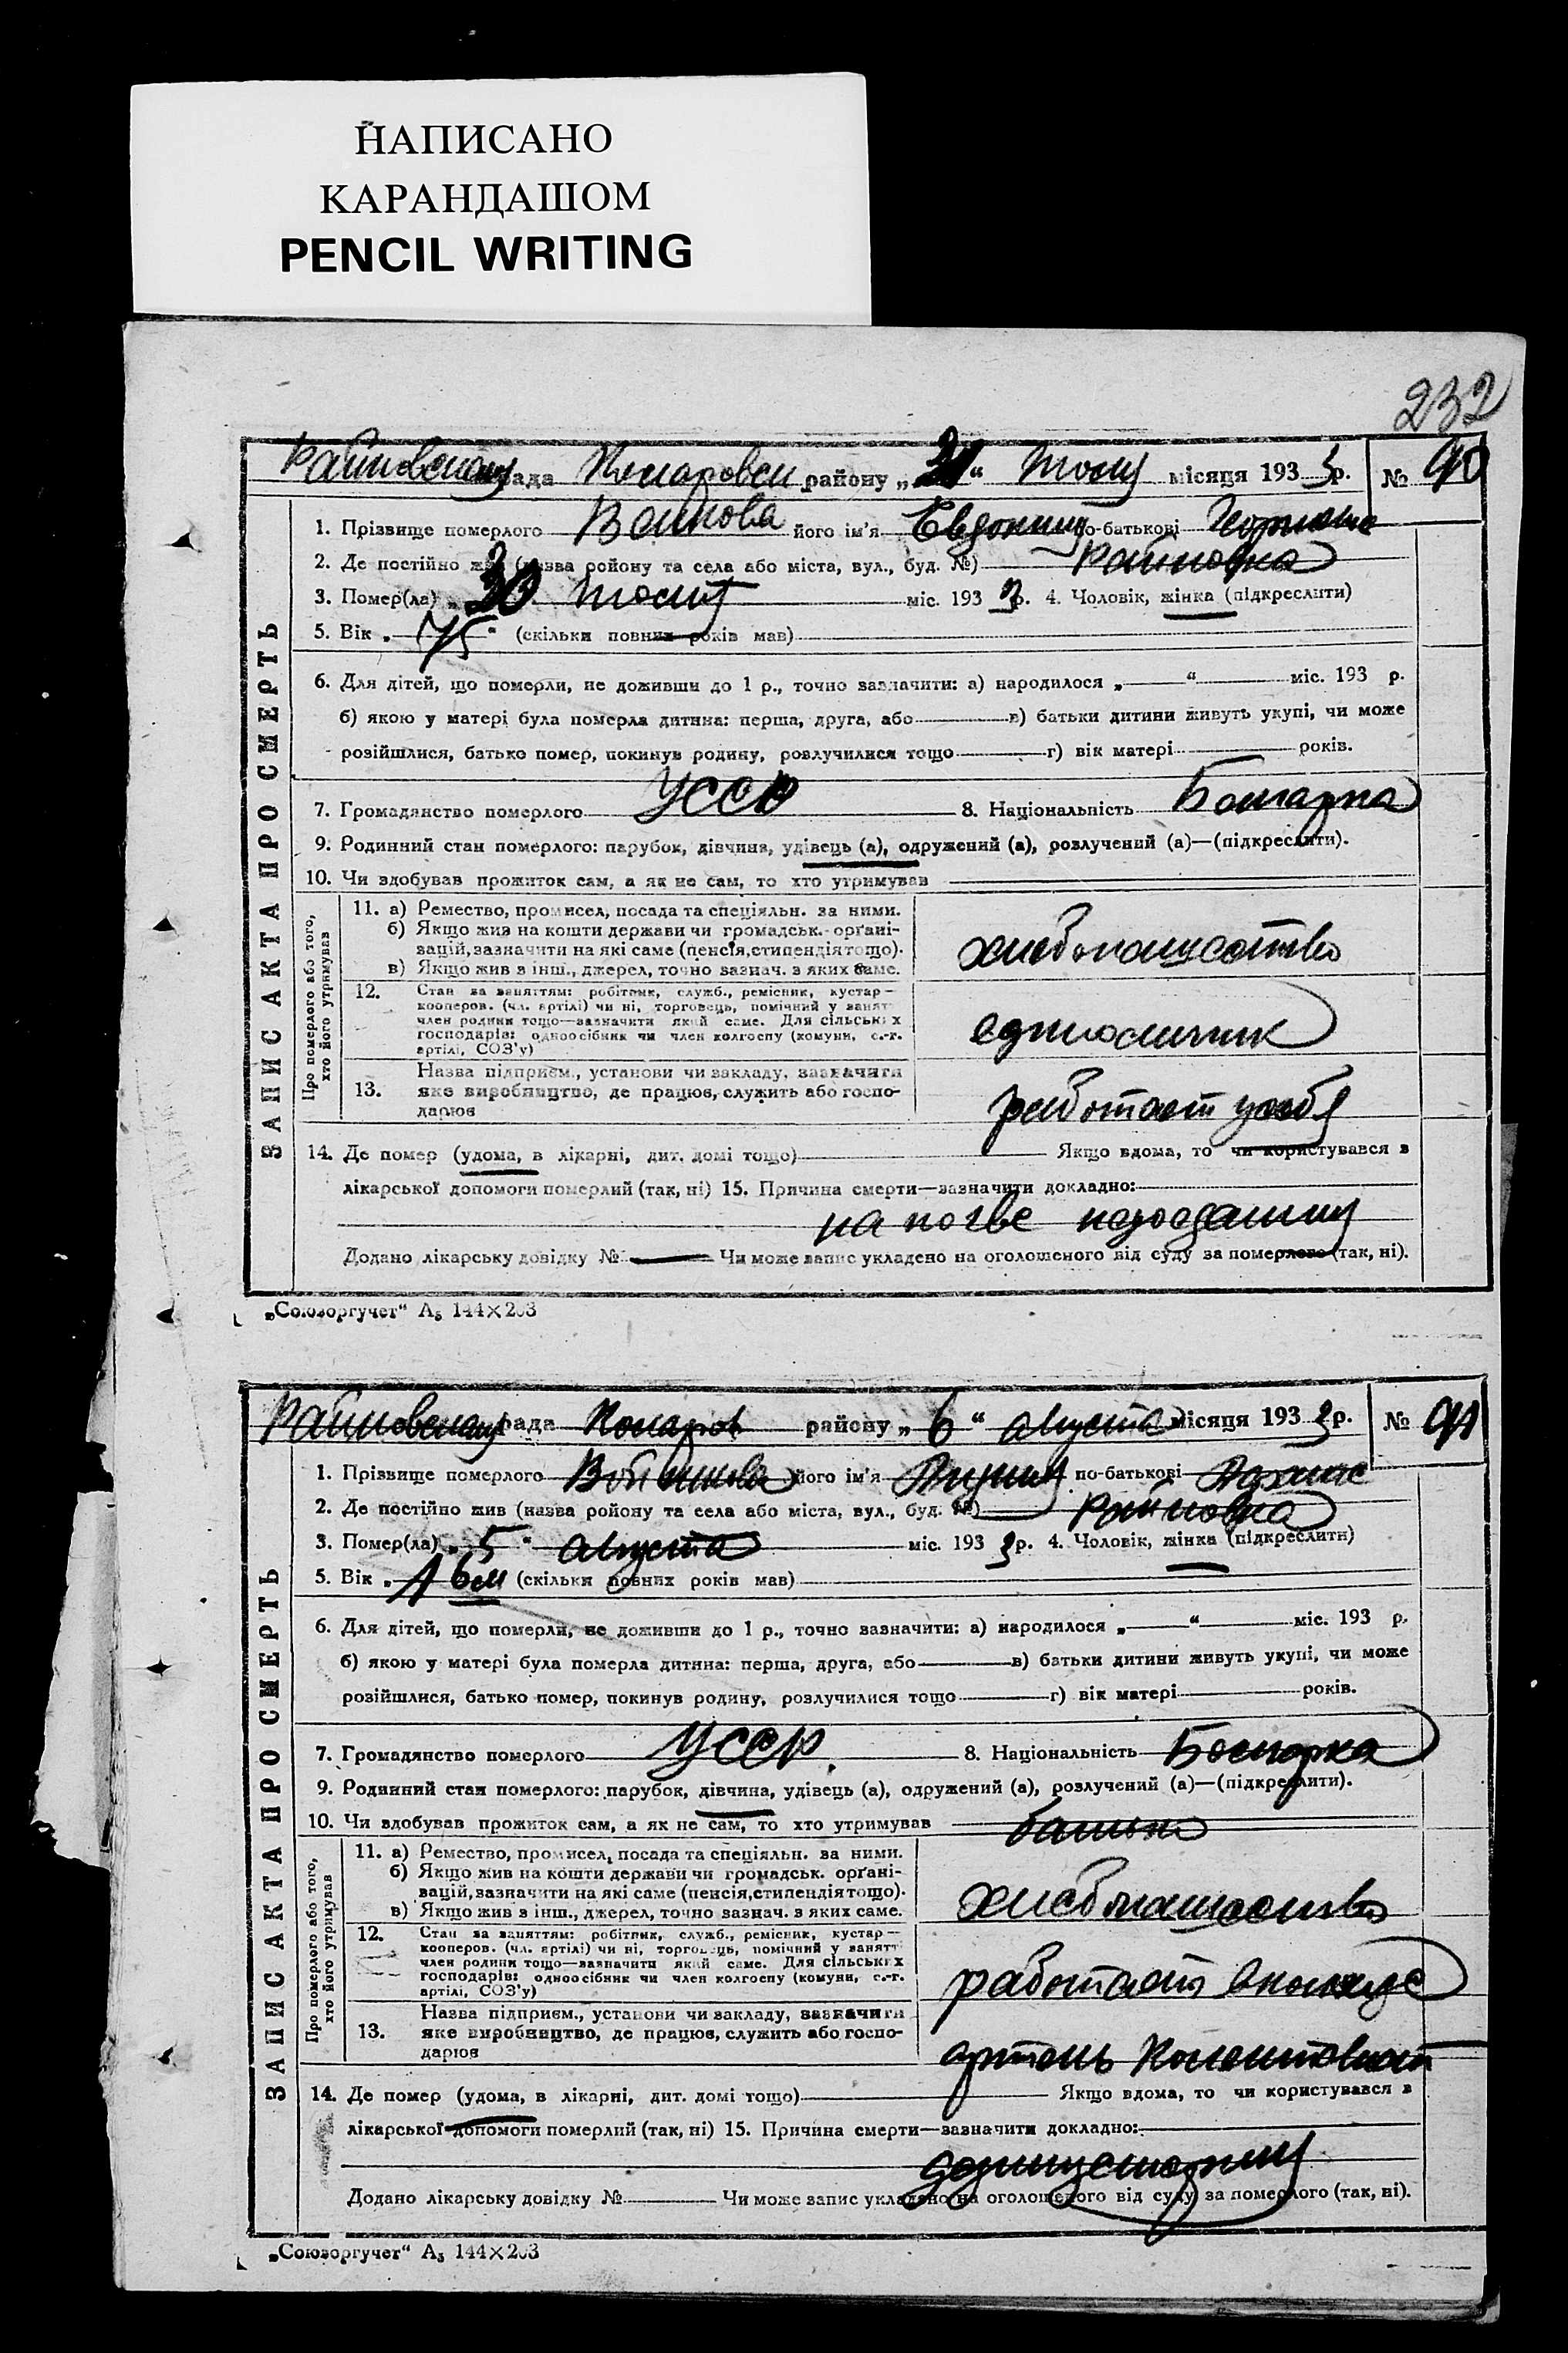 НАПИСАНО
КАРАНДАШОМ
PENCIL WRITING
232
рада району „31“ місяця 1933 р. № 90
1. Прізвище померлого Волкова його ім'я Евдокия по-батькові
2. Де постійно жив (назва ройону та села або міста, вул., буд. №) Райновка
3. Помер(ла) „30 міс. 1933 р. 4. Чоловік, жінка (підкреслити)
5. Вік „75“ (скільки повних років мав)
6. Для дітей, що померли, не доживши до 1 р., точно зазначити: а) народилося „ “ міс. 193 р.
б) якою у матері була померла дитина: перша, друга, або в) батьки дитини живуть укупі, чи може
розійшлися, батько помер, покинув родину, розлучилися тощо г) вік матері років.
7. Громадянство померлого УССР 8. Національність Болгарка
9. Родинний стан померлого: парубок, дівчина, удівець (а), одружений (а), розлучений (а)—(підкреслити).
10. Чи здобував прожиток сам, а як не сам, то хто утримував
ЗАПИС АКТА ПРО СМЕРТЬ
Про померлого або того,
хто його утримував
11. а) Ремество, промисел, посада та спеціяльн. за ними.
б) Якщо жив на кошти держави чи громадськ. орґані-
зацій, зазначити на які саме (пенсія, стипендія тощо).
в) Якщо жив з інш., джерел, точно зазнач. з яких саме.
хлебопашество
12. Стан за заняттям: робітник, служб., ремісник, кустар—
кооперов. (чл. артілі) чи ні, торговець, помічний у занят
член родини тощо—зазначити який саме. Для сільських
господарів: одноосібник чи член колгоспу (комуни, с.-г.
артілі, СОЗ'у)
единоличник
13. Назва підприєм., установи чи закладу, зазначити
яке виробництво, де працює, служить або госпо-
дарює
работает у себя
14. Де помер (удома, в лікарні, дит. домі тощо) Якщо вдома, то чи користувався з
лікарської допомоги померлий (так, ні) 15. Причина смерти—зазначити докладно:
на почве недоедания
Додано лікарську довідку № Чи може запис укладено на оголошеного від суду за померлого (так, ні).
„Союзоргучет“ А₅ 144×203
рада Комаров району „6“ августа місяця 1933 р. № 91
1. Прізвище померлого його ім'я по-батькові
2. Де постійно жив (назва ройону та села або міста, вул., буд. №) Райновка
3. Помер(ла) „5“ августа міс. 1933 р. 4. Чоловік, жінка (підкреслити)
5. Вік „1 6 м (скільки повних років мав)
6. Для дітей, що померли, не доживши до 1 р., точно зазначити: а) народилося „ “ міс. 193 р.
б) якою у матері була померла дитина: перша, друга, або в) батьки дитини живуть укупі, чи може
розійшлися, батько помер, покинув родину, розлучилися тощо г) вік матері років.
7. Громадянство померлого УССР 8. Національність Болгарка
9. Родинний стан померлого: парубок, дівчина, удівець (а), одружений (а), розлучений (а)—(підкреслити).
10. Чи здобував прожиток сам, а як не сам, то хто утримував батько
ЗАПИС АКТА ПРО СМЕРТЬ
Про померлого або того,
хто його утримував
11. а) Ремество, промисел, посада та спеціяльн. за ними.
б) Якщо жив на кошти держави чи громадськ. орґані-
зацій, зазначити на які саме (пенсія, стипендія тощо).
в) Якщо жив з інш., джерел, точно зазнач. з яких саме.
хлебопашество
12. Стан за заняттям: робітник, служб., ремісник, кустар—
кооперов. (чл. артілі) чи ні, торговець, помічний у занятт
член родини тощо—зазначити який саме. Для сільських
господарів: одноосібник чи член колгоспу (комуни, с.-г.
артілі, СОЗ'у)
работает в колхозе
13. Назва підприєм., установи чи закладу, зазначити
яке виробництво, де працює, служить або госпо-
дарює
артель
14. Де помер (удома, в лікарні, дит. домі тощо) Якщо вдома, то чи користувався з
лікарської допомоги померлий (так, ні) 15. Причина смерти—зазначити докладно:
Додано лікарську довідку № Чи може запис укладено на оголошеного від суду за померлого (так, ні).
„Союзоргучет“ А₅ 144×203